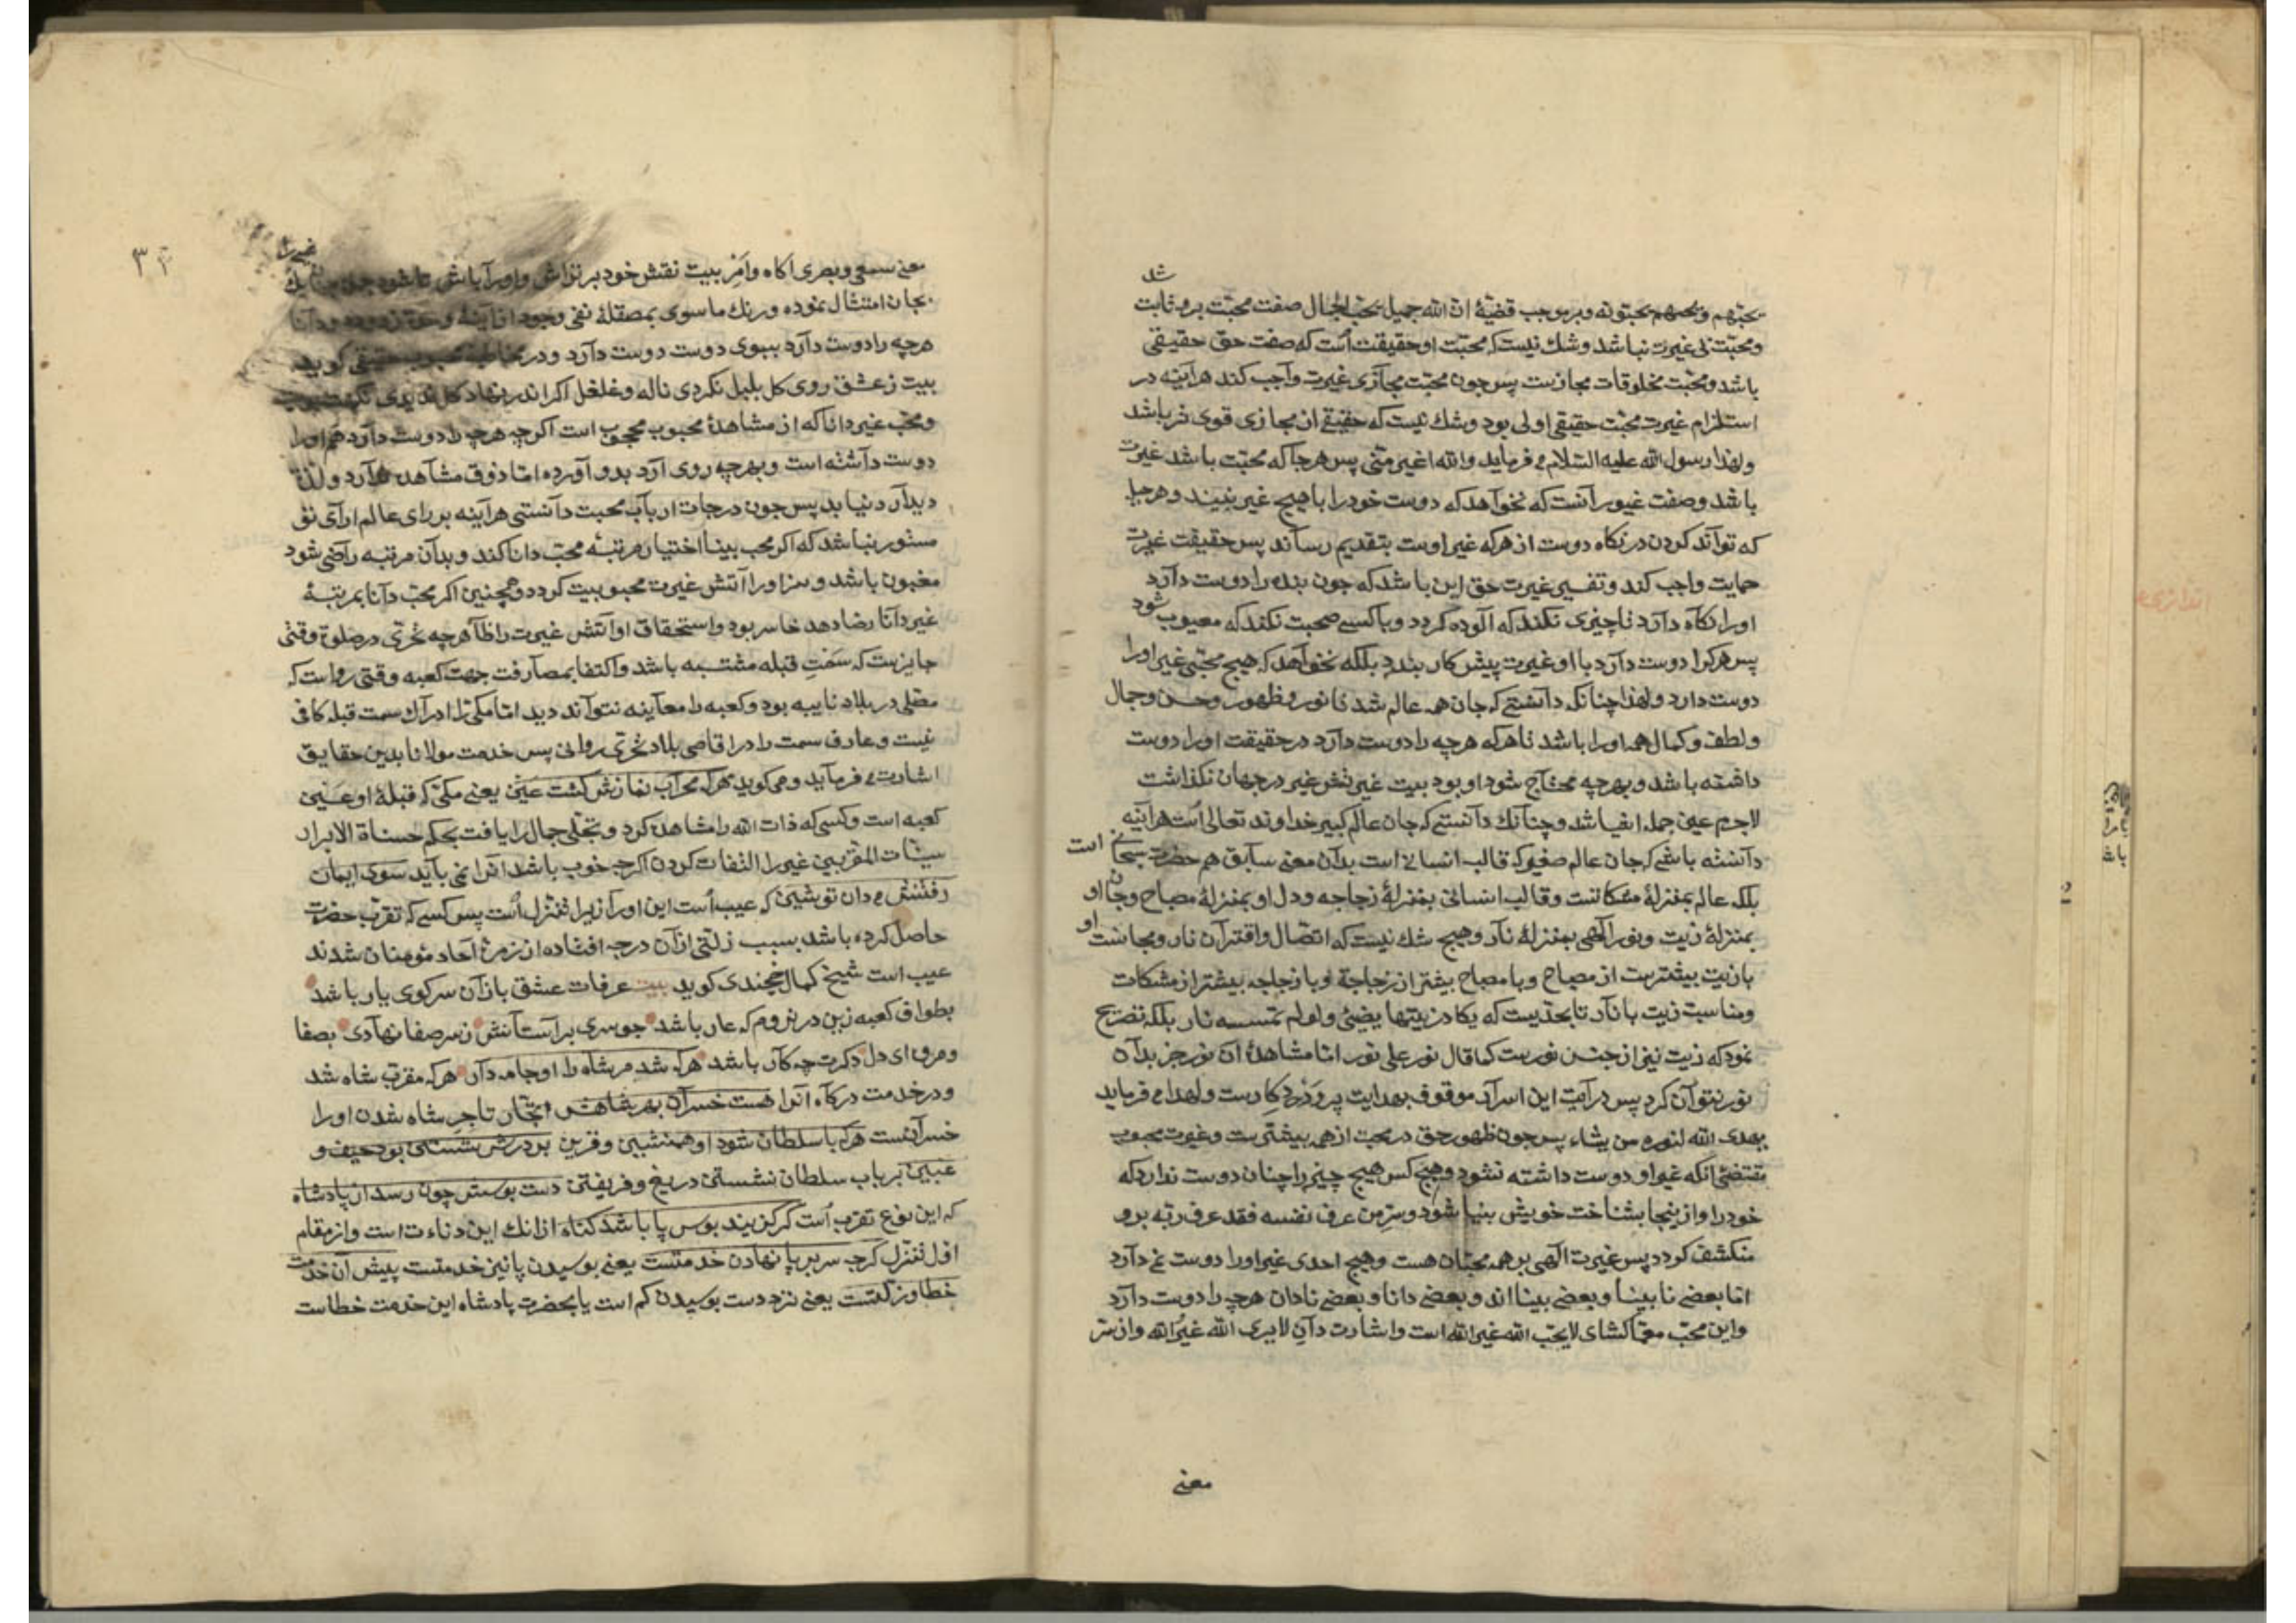 یحبّهم و یحبّهم یحبّونه و بر موجب قضیهٔ ان الله جمیل یحب الجمال صفت محبّت برو ثابت شد
و محبّت بی غیرت نباشد و شك نیست که محبّت او حقیقت است که صفت حق حقیقی
باشد و محبّت مخلوقات مجازیست پس جون محبّت مجازی غیرت واجب کند هراینه در
استلزام غیرت محبّت حقیقی اولی بود و شك نیست که حقیقی از مجازی قوی تر باشد
و لهذا رسول الله علیه السّلام می فرماید والله اغیر منّی پس هرجا که محبّت باشد غیرت
باشد و صفت غیور آنست که نخوآهد که دوست خود را با هیچ غیر بیند و هرجا
که توآند کردن در نکاه دوست از هرکه غیر اوست بتقدیم رساند پس حقیقت غیرت
حمایت واجب کند و تفسیر غیرت حق این باشد که جون بنده را دوست دآرد
او را نکاه دآرد تا چیزی نکند که آلوده کردد و با کسی صحبت نکند که معیوب شود
پس هرکرا دوست دآرد با او غیرت پیش کار بندد بلکه نخوآهد که هیچ محبّی غیر او را
دوست دارد و لهذا چنانکه دآنستی که جان همه عالم شد تا نور و ظهور و حسن و جمال
و لطف و کمال همه او را باشد تا هرکه هرچه را دوست دآرد در حقیقت او را دوست
داشته باشد و بهرچه محتاج شود او بود بیت غیرتش غیر در جهان نکذاشت
لاجرم عین جمله اشیا شد و چنآنك دآنستی که جان عالم کبیر خداوند تعالی است هرآینه
دآنسته باشی که جان عالم صغیر که قالب انسانی است بدآن معنی سابق هم حضرت سبحانی است
بلکه عالم بمنزلهٔ مشکاتست و قالب انسانی بمنزلهٔ زجاجه و دل او بمنزلهٔ مصباح و جان او
بمنزلهٔ زیت و نور آلهی بمنزلهٔ نآر و هیچ شك نیست که اتصال و اقترآن نار و مجانست او
با زیت بیشترست از مصباح و با مصباح بیشتر از زجاجة و با زجاجه بیشتر از مشکات
و مناسبت زیت با نآر تا بحدّیست که یکاد زیتها یضیئ و لو لم تمسسه نار بلکه تصریح
نمود که زیت نیز از جنس نورست کما قال نور علی نور امّا مشاهدهٔ ان نور جز بدآن
نور نتوآن کرد پس در آمدن این اسرآر موقوف بهدایت پروردکارست و لهذا می فرماید
یهدی الله لنوره من یشاء پس جون ظهور حق در محبّت از همه بیشترست و غیرت محبوب
تقتضی انکه غیر او دوست داشته نشود و هیچ کس هیچ چیز را چنان دوست ندارد که
خود را و از ینجا بشناخت خویش بینا شود و سرّ من عرف نفسه فقد عرف ربّه برو
منکشف کردد پس غیرت آلهی بر همه محبّان هست و هیچ احدی غیر او را دوست نمی دآرد
امّا بعضی نابینا و بعضی بینا اند و بعضی دانا و بعضی نادان هرچه را دوست دآرد
و این محبّ معمّا کشای لا یحبّ الله غیر الله است و اشارت دآن لا یری الله غیر الله و از سرّ
معنی
۳
معنی سمعی و بصری آکاه و آمر بیت نقش خود بر تراش و او را باش تا شود
بجان امتثال نموده و رنك ماسوی بمصقلهٔ نفی وجود از آینهٔ
هرچه را دوست دآرد ببوی دوست دوست دآرد و در مخاطبه محبوب حقیقی کوید
بیت ز عشق روی کل بلبل نکردی ناله و غلغل اکر اندر نهاد کل ندیدی
و محبّ غیر دانا که از مشاهدهٔ محبوب محجوب است اکرچه هرچه را دوست دآرد هم او را
دوست دآشته است و بهرچه روی آرد بدو آورده امّا ذوق مشاهده ندآرد و لذت
دیدآر در نیابد پس جون درجات ارباب محبت دآنستی هرآینه بر رای عالم ارآی تو
مستور نباشد که اکر محب بینا اختیار مرتبهٔ محبّ دانا کند و بدآن مرتبه رآضی شود
مغبون باشد و سزاور آتش غیرت محبوبیت کردد و همچنین اکر محبّ دآنا بمرتبهٔ
غیر دآنا رضا دهد خاسر بود و استحقاق او آتش غیرت را ظآهر چه تحرّی در صلوة وقتی
جایزست که سَمْتِ قبله مشتبه باشد و اکتفا بمصآرفت جهت کعبه وقتی رواست که
مصلّی در بلاد نایبه بود و کعبه را معآینه نتوآند دید امّا مکّی را ادرآك سمت قبله کافی
نیست و عارف سمت را در اقاصی بلاد تحرّی روا نی پس خدمت مولانا بدین حقایق
اشارت می فرمآید و می کوید هرکه محرآب نمازش کشت عین یعنی مکّی که قبلهٔ او عین
کعبه است و کسی که ذات الله را مشاهده کرد و تجلّی جمال را یافت بحکم حسناة الابرار
سیّئات المقرّبین غیر را التفات کردن اکرچه خوب باشد انرا نمی بآید سوی ایمان
رفتنش می دان تو شین که عیب است این او را زیرا تنزّل است پس کسی که تقرّب حضرت
حاصل کرده باشد بسبب زلّتی از آن درجه افتاده از زمرهٔ آحاد مؤمنان شدند
عیب است شیخ کمال خجندی کوید بیت عرفات عشق بازآن سر کوی یار باشد
بطواف کعبه زین در نروم که عار باشد جو سری بر آستآنش ز سر صفا نهآدی بصفا
و مروه ای دل دکرت چه کآر باشد هرکه شد مر شاه را او جامه دآر هرکه مقرّب شاه شد
و در خدمت درکآه آنرا هست خسرآن بهر شاهش اتّجار تاجر شاه شدن او را
خسرآنست هرکه با سلطان شود او همنشین و قرین بر درش شستن بود حیف و
غبین بر باب سلطان نشستن دریغ و فریفتن دست بوسش چون رسد از پادشاه
که این نوع تقرّب است کر کزیند بوس پا باشد کناه ازانك این دناءت است و از مقام
اوّل تنزّل کرچه سر بر پا نهادن خدمتست یعنی بوسیدن پا نیز خدمتست پیش آن خدمت
خطا و زلّتست یعنی نزد دست بوسیدن کم است یا بحضرت پادشاه این خدمت خطاست